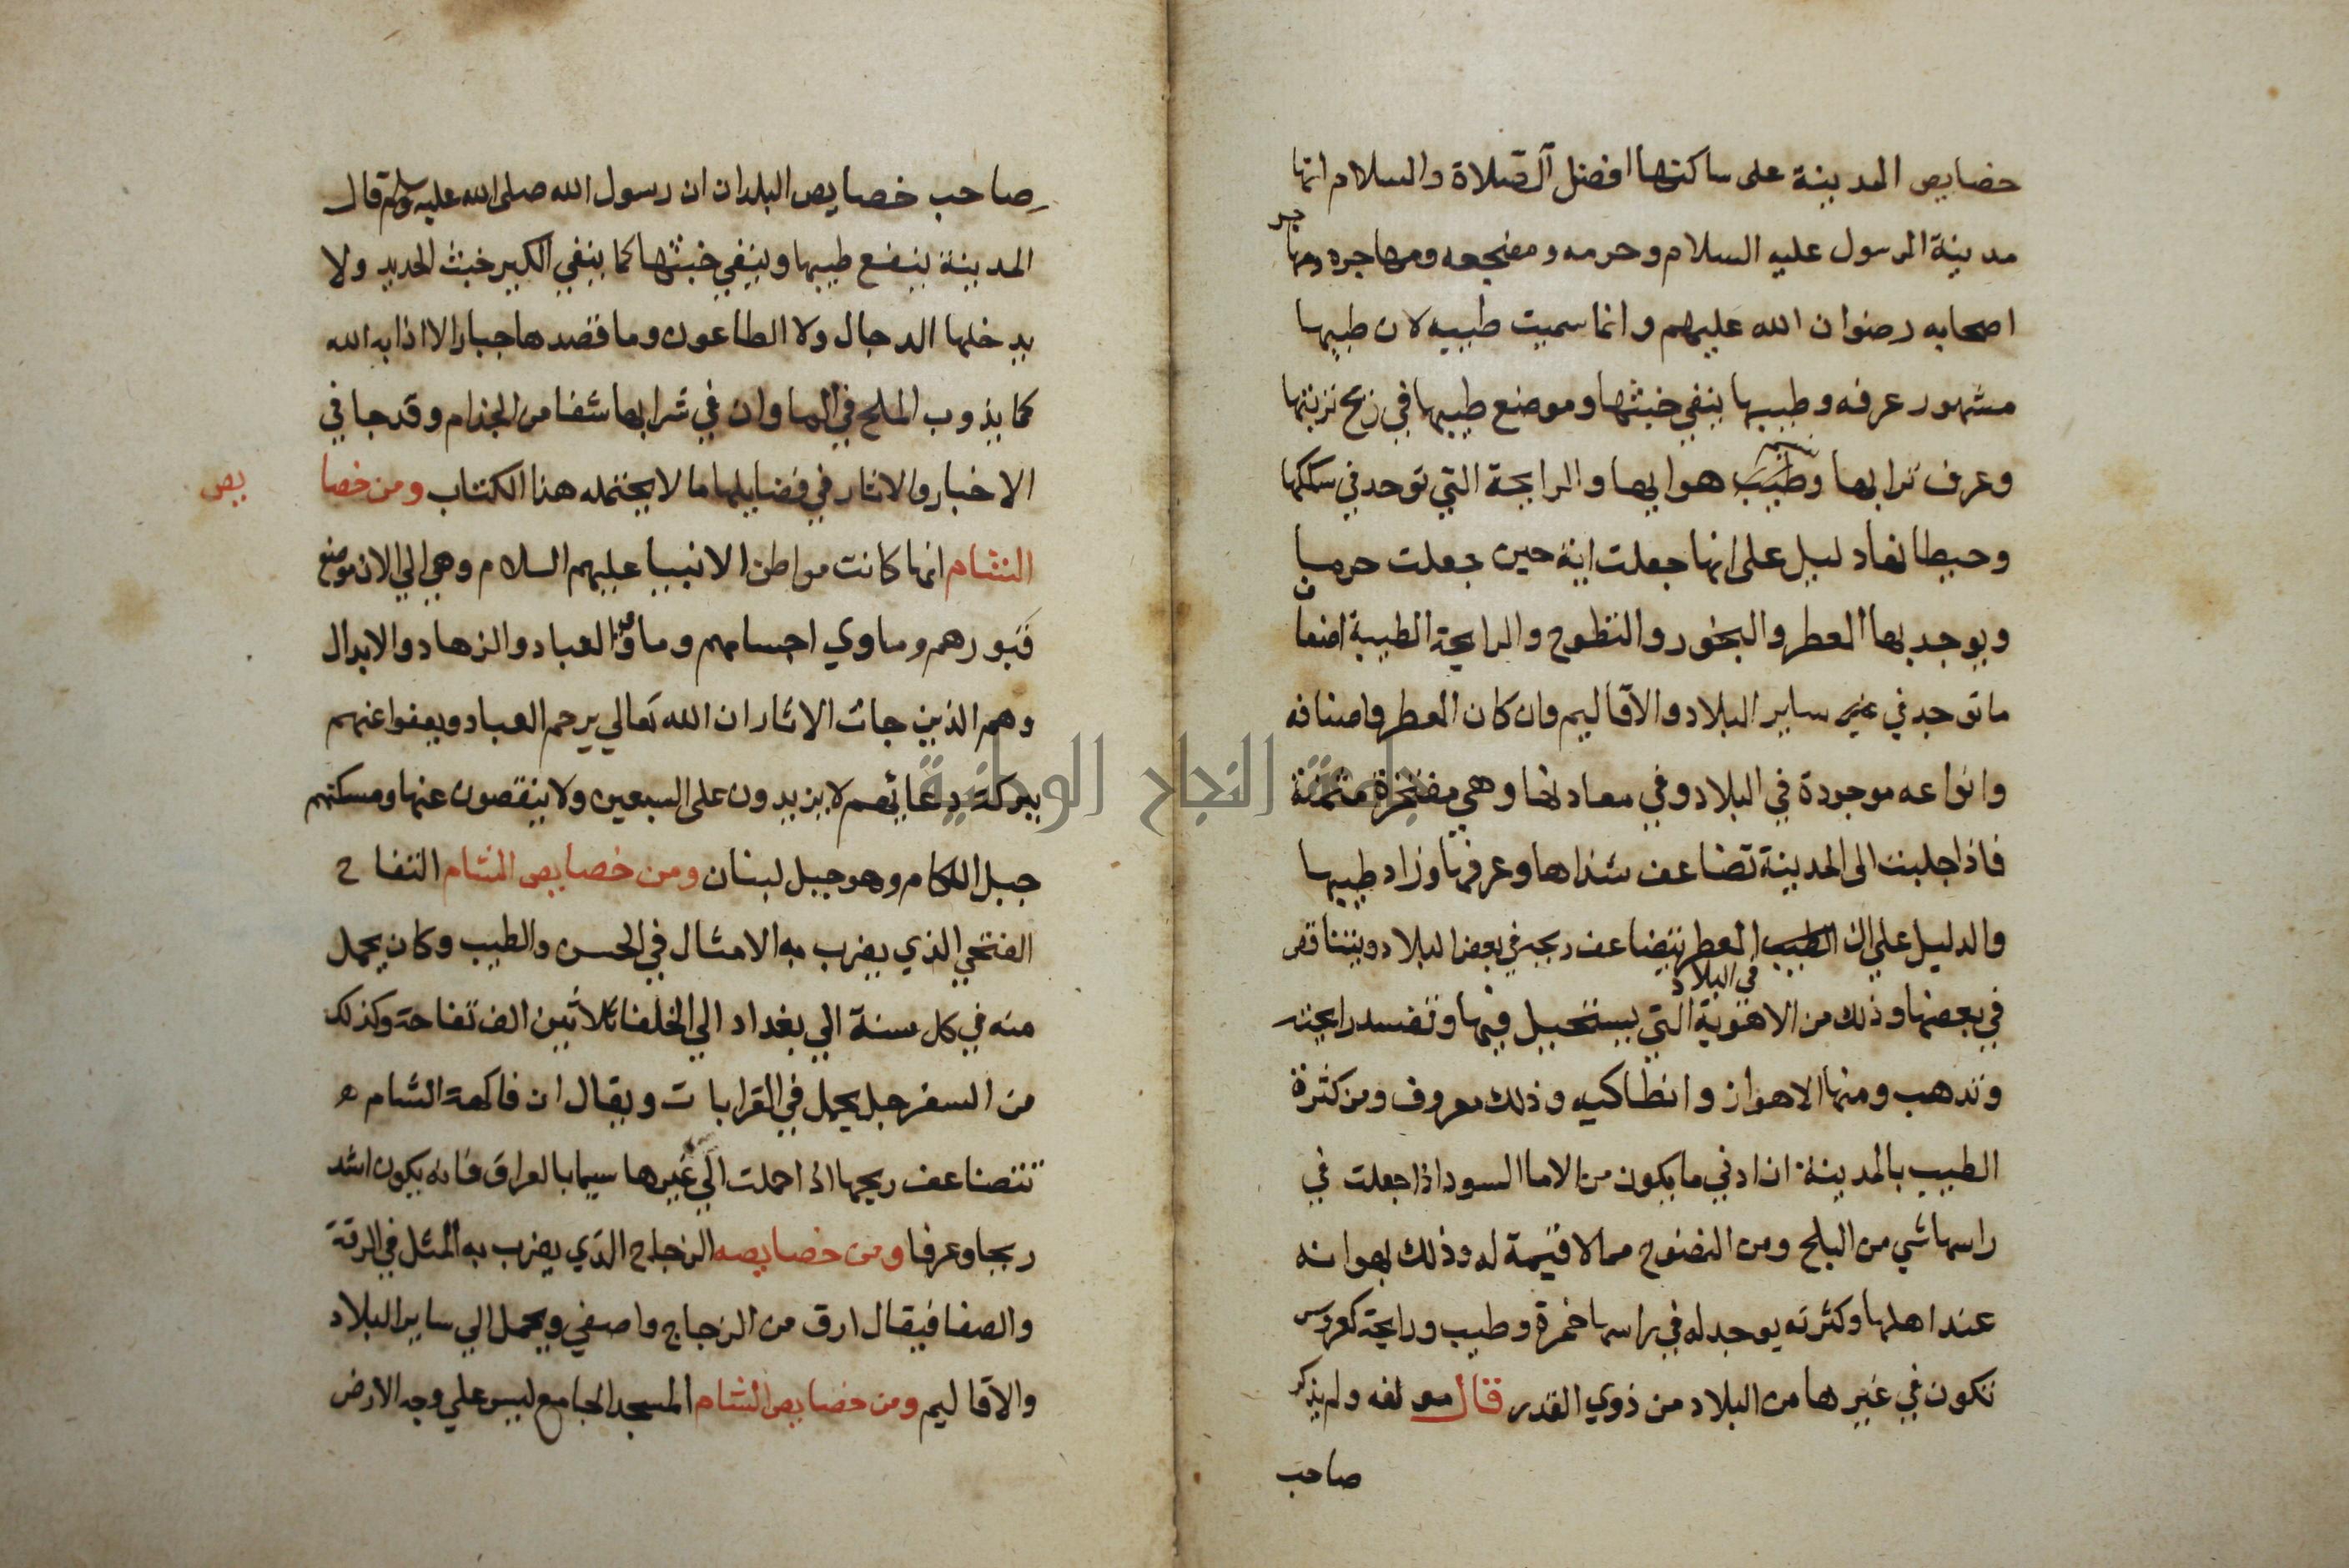 خصايص المدينة على ساكنها افضل الصلاة والسلام انها
مدينة الرسول عليه السلام وحرمه ومضجعه ومهاجره ومهاجر
اصحابه رضوان الله عليهم وانما سميت طيبه لان طيبها
مشهور عرفه وطيبها ينفي خبثها وموضع طيبها في ريح تربتها
وعرف ترابها وطيب هوايها والرايحة التي توجد في سككها
وحيطانها دليل على انها جعلت اية حين جعلت حرما
ويوجد بها العطر والبخور والنضوح والرايحة الطيبة اضعاف
ما توجد في غير ساير البلاد والاقاليم وان كان العطر واصنافه
وانواعه موجودة في البلاد وفي معادنها وهي مفتخرة مثمنة
فاذا جلبت الى المدينة تضاعف شذاها وعرفها وزاد طيبها
والدليل علي ان الطيب العطر يتضاعف ريحه في بعض البلاد ويتناقص
في البلاد
في بعضها وذلك من الاهوية التي يستحيل فيها وتفسد رايحته
وتذهب ومنها الاهواز وانطاكيه وذلك معروف ومن كثرة
الطيب بالمدينة ان ادني ما يكون من الاما السود اذا جعلت في
راسها شي من البلح ومن النضوح مما لا قيمة له وذلك لهوانه
عند اهلها وكثرته يوجد له في راسها خمرة وطيب ورايحة كعروس
تكون في غيرها من البلاد من ذوي القدر قال مولفه ولم يذكر
صاحب
صاحب خصايص البلدان ان رسول الله صلى الله عليه وسلم قال
المدينة ينصع طيبها وينفي خبثها كما ينفي الكير خبث الحديد ولا
يدخلها الدجال ولا الطاعون وما قصدها جبار الا اذابه الله
كما يذوب الملح في الما وان في شرابها شفا من الجذام وقد جا في
الاخبار والاثار في فضايلها ما لا يحتمله هذا الكتاب ومن خصا يص
الشام انها كانت مواطن الانبيا عليهم السلام وهي الي الان موضع
قبورهم وماوي اجسامهم وماوي العباد والزهاد والابدال
وهم الذين جات الاثار ان الله تعالي يرحم العباد ويعفوا عنهم
ببركة دعائهم لا يزيدون على السبعين ولا ينقصون عنها ومسكنهم
جبل اللكام وهو جبل لبنان ومن خصايص الشام التفاح
الفتحي الذي يضرب به الامثال في الحسن والطيب وكان يحمل
منه في كل سنة الي بغداد الي الخلفا ثلاثين الف تفاحة وكذلك
من السفرجل يحمل في القرابات ويقال ان فاكهة الشام ه
تتضاعف ريحها اذا حملت الي غيرها سيما بالعراق فانه يكون اشد
ريحا وعرفا ومن خصايصه الزجاج الذي يضرب به المثل في الرقة
والصفا فيقال ارق من الزجاج واصفي ويحمل الي ساير البلاد
والاقاليم ومن خصايص الشام المسجد الجامع ليس علي وجه الارض
جامعة النجاح الوطنية